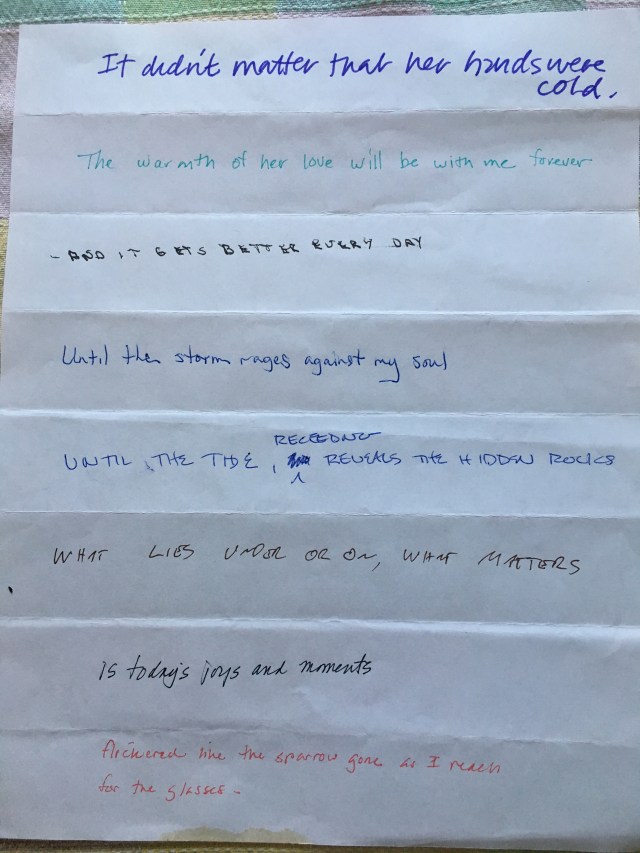 It didn't matter that her hands were
cold.
The warmth of her love will be with me forever
- AND IT GETS BETTER EVERY DAY
Until the storm rages against my soul
RECEEDING
UNTIL THE TIDE, REVEALS THE HIDDEN ROCKS
WHAT LIES UNDER OR ON, WHAT MATTERS
is today's joys and moments
flickered like the sparrow gone as I reach
for the glasses -